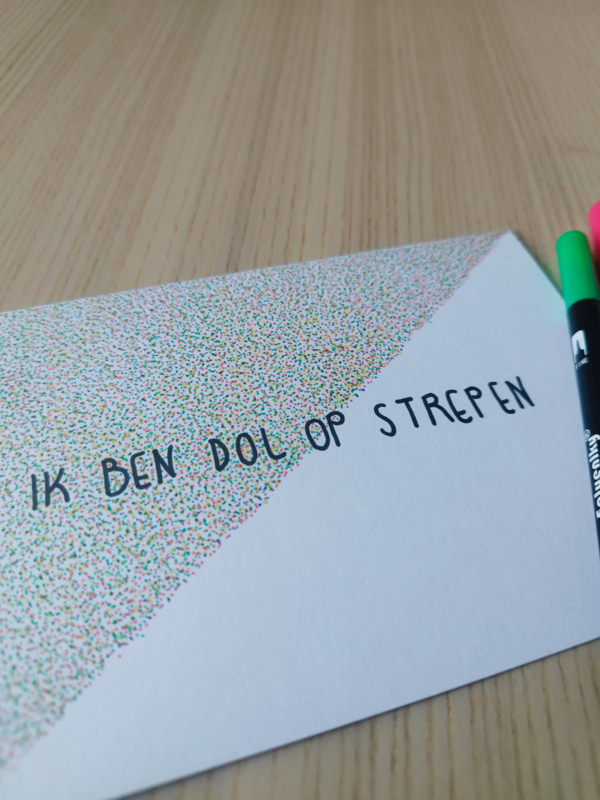 IK BEN DOL OP STREPEN